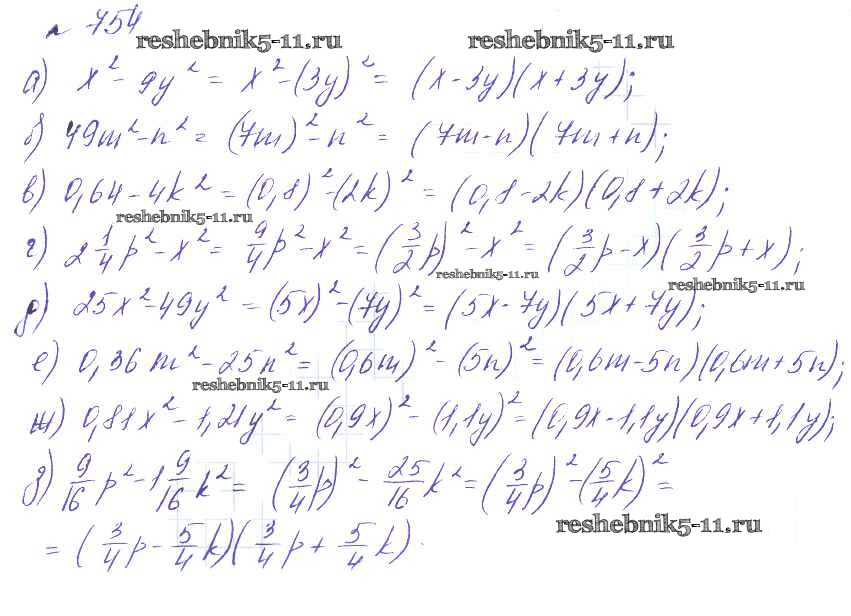 № 754
reshebnik5-11.ru reshebnik5-11.ru
а) x² - 9y² = x² - (3y)² = (x - 3y)(x + 3y);
б) 49m² - n² = (7m)² - n² = (7m - n)(7m + n);
в) 0,64 - 4k² = (0,8)² - (2k)² = (0,8 - 2k)(0,8 + 2k);
reshebnik5-11.ru
г) 2 1/4 p² - x² = 9/4 p² - x² = (3/2 p)² - x² = (3/2 p - x)(3/2 p + x);
reshebnik5-11.ru reshebnik5-11.ru
д) 25x² - 49y² = (5x)² - (7y)² = (5x - 7y)(5x + 7y);
е) 0,36m² - 25n² = (0,6m)² - (5n)² = (0,6m - 5n)(0,6m + 5n);
reshebnik5-11.ru
ж) 0,81x² - 1,21y² = (0,9x)² - (1,1y)² = (0,9x - 1,1y)(0,9x + 1,1y);
з) 9/16 p² - 1 9/16 k² = (3/4 p)² - 25/16 k² = (3/4 p)² - (5/4 k)² =
reshebnik5-11.ru
= (3/4 p - 5/4 k)(3/4 p + 5/4 k).